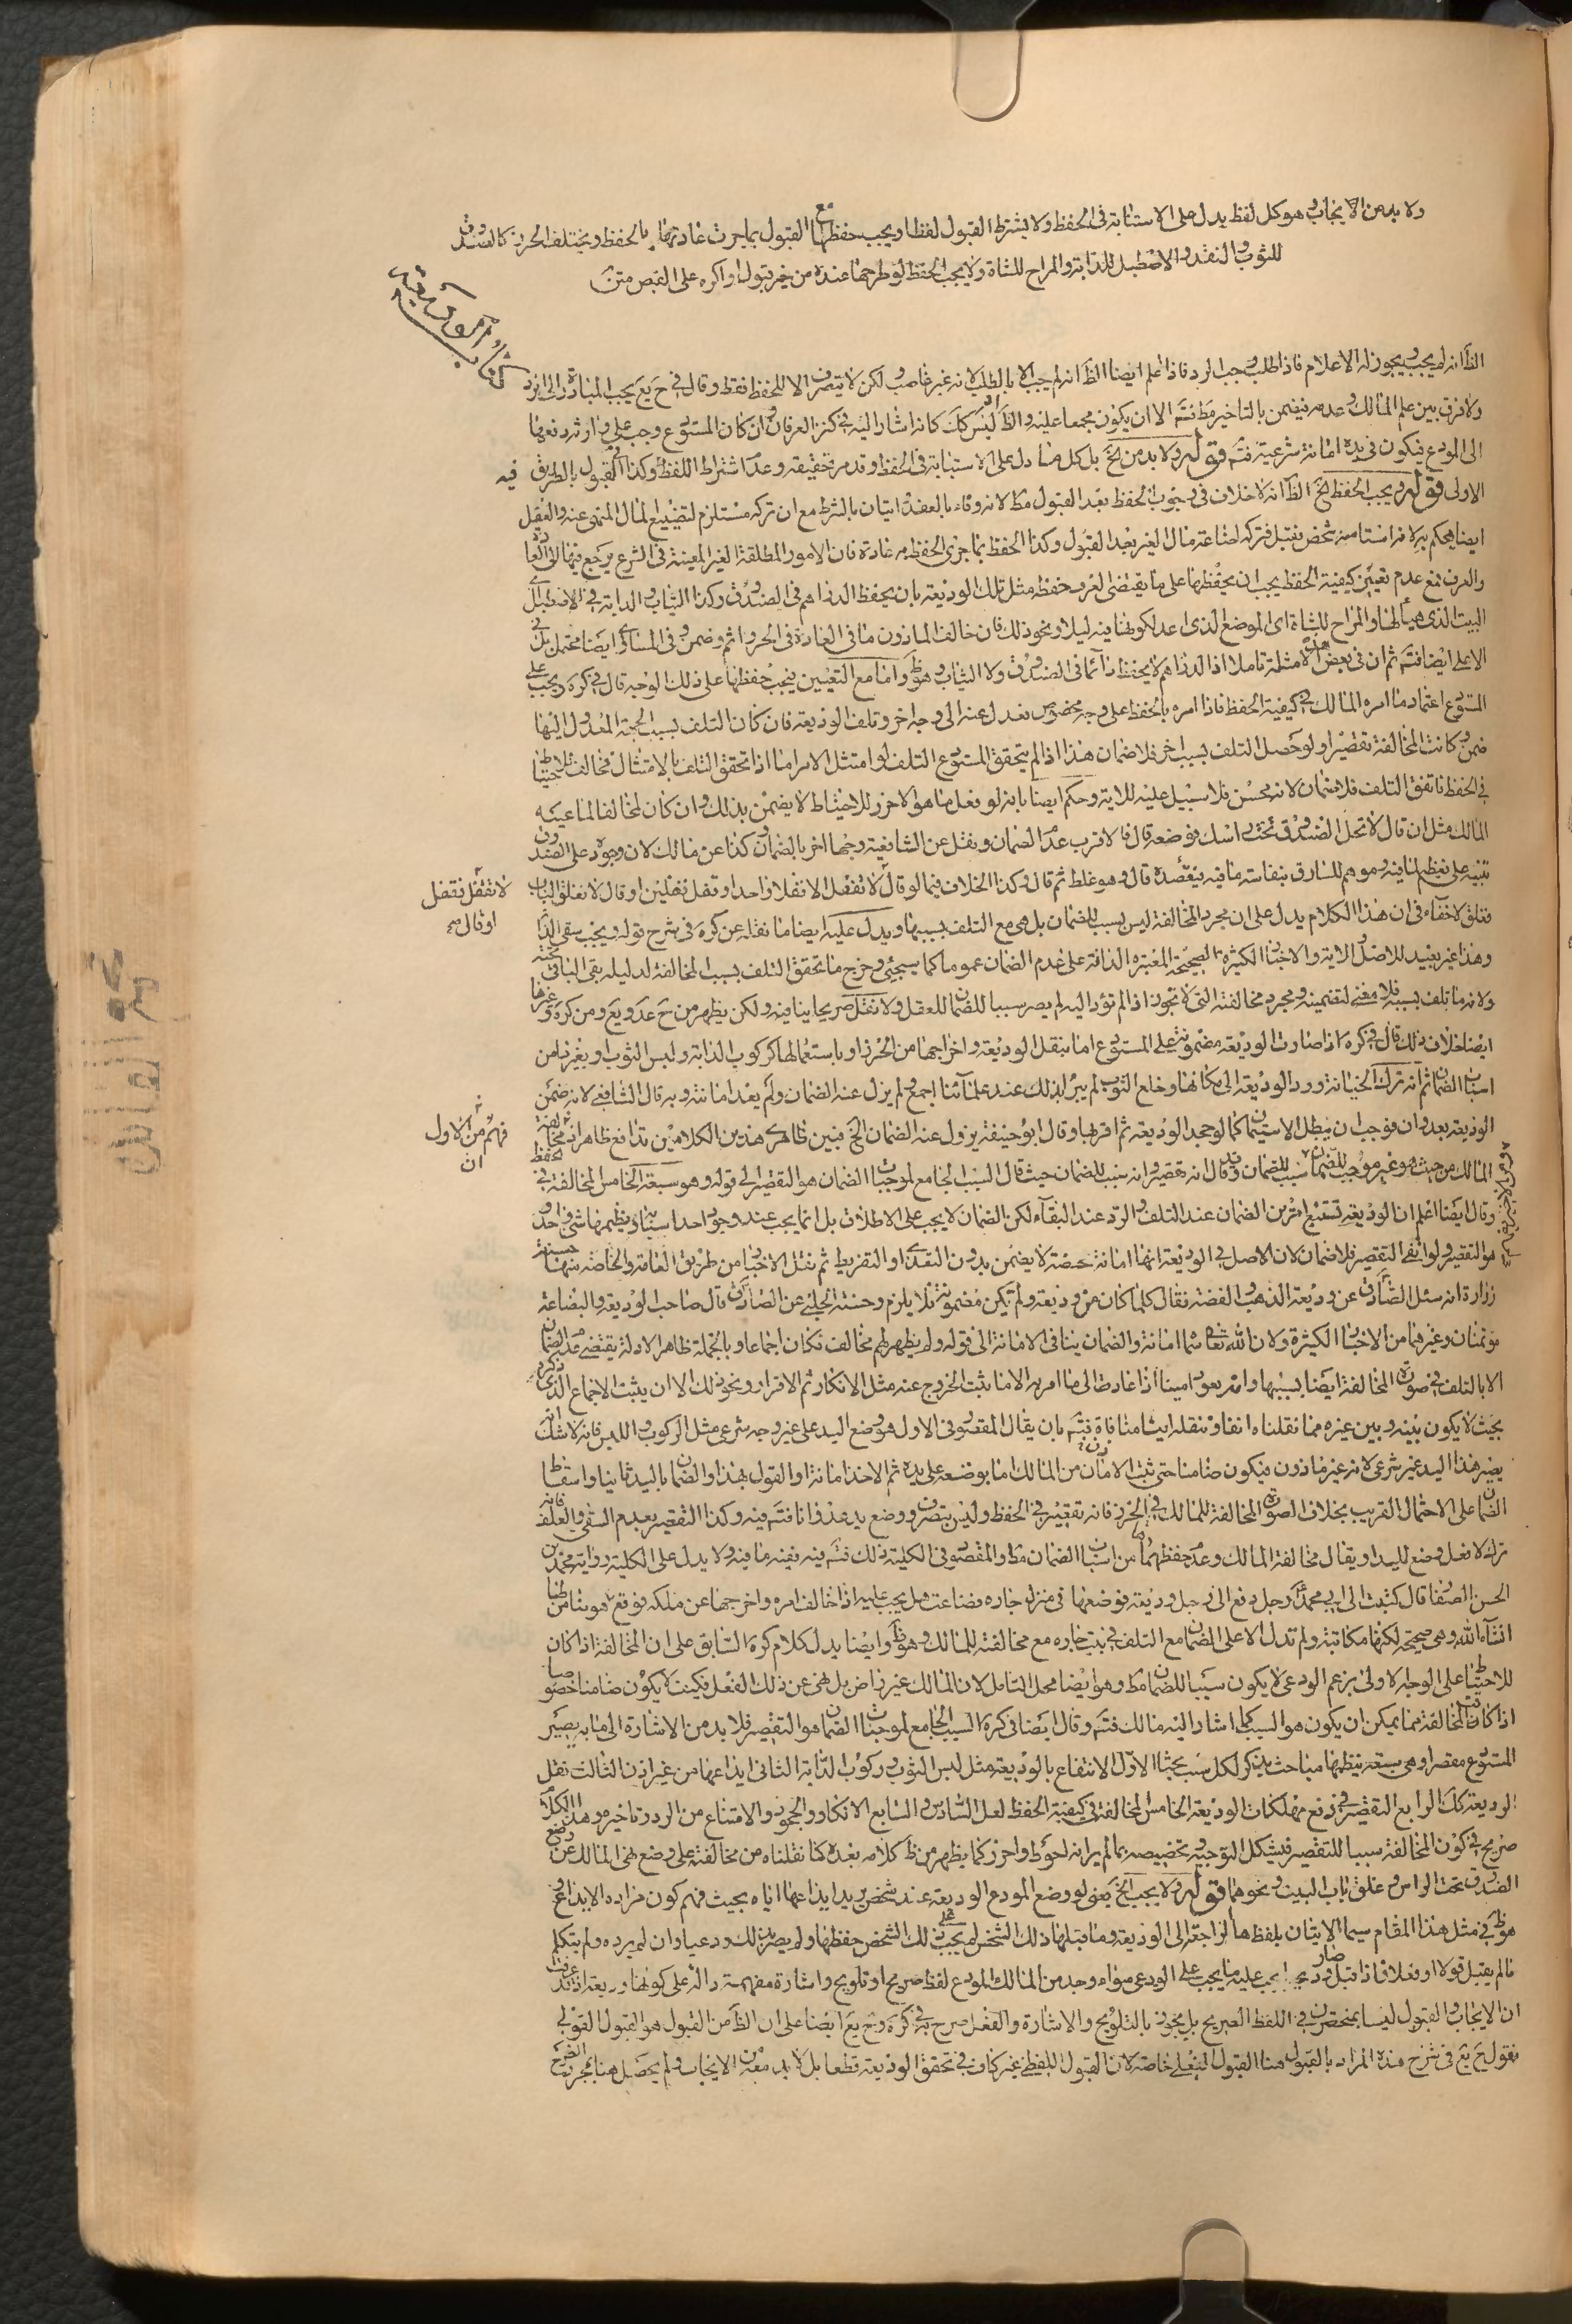 ولا بد من الايجاب وهو كل لفظ يدل على الاستنابة فى الحفظ ولا يشترط القبول لفظا ويجب حفظها مع القبول بما جرت عادتها بالحفظ ويختلف الحرز كالصندوق
للثوب والنقد والاصطبل للدابة والمراح للشاة ولا يجب الحفظ لو طرحها عنده من غير قبول او اكره على القبض متن
كتاب الوديعة
الظ انه لم يجب ويجوز له الاعلام فاذا طلب وجب الرد فاذا علم ايضا الظ انه لم يجب الا بالطلب لانه غير غاصب لكن لا يتصرف الا للحفظ فقط وقال في ح يع يجب المبادرة الى الرد
ولا فرق بين علم المالك وعدمه فيضمن بالتاخير مط فتم الا ان يكون مجمعا عليه والظ انه ليس كك كانه اشار اليه فى كنز العرفان وان كان المستودع وجب على وارثه دفعها
الى المودع فيكون فى يده امانة شرعية فتم قوله ولا بد من الخ بل كل ما دل على الاستنابة فى الحفظ وقد مر تحقيقه وعدم اشتراط اللفظ وكذا فى القبول بالطريق
الاولى قوله ويجب الحفظ الخ الظ انه لا خلاف فى وجوب الحفظ بعد القبول مط لانه وفاء بالعقد اتيان بالشرط مع ان تركه مستلزم لتضييع المال المنهى عنه والعقل
ايضا يحكم به لانه استامنه شخص فقبل فتركه اضاعة مال الغير بعد القبول وكذا الحفظ بما جرى الحفظ به عادة فان الامور المطلقة الغير المعينة فى الشرع يرجع فيها الى العادة
والعرف فمع عدم تعيين كيفية الحفظ يجب ان يحفظها على ما يقتضى العرف حفظه مثل تلك الوديعة بان يحفظ الدراهم فى الصندوق وكذا الثياب والدابة فى الاصطبل اى
البيت الذى هيأ لها والمراح للشاة اى الموضع الذى اعد لكونها فيه ليلا ونحو ذلك فان خالف الماذون ما فى العادة فى الحرز اثم وضمن وفى المساوى ايضا محتمل بل فى
الاعلى ايضا فتم ثم ان فى بعض هذه الامثلة تاملا اذ الدراهم لا يحفظ دائما فى الصندوق ولا الثياب وهو ظ واما مع التعيين فيجب حفظها على ذلك الوجه قال فى كره ويجب على
المستودع اعتماد ما امره المالك فى كيفية الحفظ فاذا امره بالحفظ على وجه مخصوص فعدل عنه الى وجه اخر وتلف الوديعة فان كان التلف بسبب الجهة المعدول اليها
ضمن وكانت المخالفة تقصيرا ولو حصل التلف بسبب اخر فلا ضمان هذا اذا لم يتحقق المستودع التلف لو امتثل الامر اما اذا تحقق التلف بالامتثال فخالف للاحتياط
فى الحفظ فاتفق التلف فلا ضمان لانه محسن فلا سبيل عليه للاية وحكم ايضا بانه لو فعل ما هو الاحرز للاحتياط لا يضمن بذلك وان كان مخالفا لما عينه
المالك مثل ان قال لا تجعل الصندوق تحت راسك فوضعه قال فالاقرب عدم الضمان ونقل عن الشافعية وجها اخر بالضمان وكذا عن مالك لان وجوده على الصندوق
تنبيه على تعظيم ما فيه وموهم للسارق بنفاسة ما فيه فيقصده قال وهو غلط ثم قال وكذا الخلاف فيما لو قال لا تقفل الا قفلا واحدا وقفل قفلين او قال لا تغلق الباب
فغلق لا خفاء فى ان هذا الكلام يدل على ان مجرد المخالفة ليس بسبب للضمان بل هى مع التلف بسببها ويدل عليه ايضا ما نقله عن كره فى شرح قوله ويجب سقى الدابة
وهذا غير بعيد للاصل والاية والاخبار الكثيرة الصحيحة المعتبرة الدالة على عدم الضمان عموما كما سيجئ وخرج ما تحقق التلف بسبب المخالفة لدليله بقى الباقى تحته
ولانه ما تلف بسببه فلا معنى لتضمينه ومجرد مخالفته التى لا تجوز اذا لم تؤد اليه لم يصر سببا للضمان للعقل ولا نقل صريحا ينافيه ولكن يظهر من ح عد ويع ومن كره وغيرها
ايضا خلاف ذلك قال فى كره اذا صارت الوديعة مضمونة على المستودع اما بنقل الوديعة واخراجها من الحرز او باستعمالها كركوب الدابة ولبس الثوب او بغيرها من
اسباب الضمان ثم انه ترك الخيانة ورد الوديعة الى مكانها وخلع الثوب لم يبرأ بذلك عند علمائنا اجمع ولم يزل عنه الضمان ولم يعد امانته وبه قال الشافعى لانه ضمن
الوديعة بعدوان فوجب ان يبطل الاستيمان كما لو جحد الوديعة ثم اقر بها وقال ابو حنيفة يزول عنه الضمان الخ فبين ظاهرى هذين الكلامين تدافع ظاهر انه مخالفة
المالك من حيث هو غير موجب للضمان سبب للضمان وقد قال انه تقصير وانه سبب للضمان حيث قال السبب الجامع لموجبات الضمان هو التقصير الى قوله وهو سبعة الخامس المخالفة فى الحفظ
وقال ايضا اعلم ان الوديعة تستتبع امرين الضمان عند التلف والرد عند البقاء لكن الضمان لا يجب على الاطلاق بل انما يجب عند وجود احد اسبابه وينظمها شئ واحد و
هو التقصير ولو انتفى التقصير فلا ضمان لان الاصل فى الوديعة انها امانة محضة لا يضمن بدون التعدى او التفريط ثم نقل الاخبار من طريق العامة والخاصة منها حسنة
زرارة انه سئل الصادق عن وديعة الذهب والفضة فقال كلما كان من وديعة ولم تكن مضمونة فلا يلزم وحسنة الحلبى عن الصادق قال صاحب الوديعة والبضاعة
مؤتمنان وغيرهما من الاخبار الكثيرة ولان الله تعالى سماها امانة والضمان ينافى الامانة الى قوله ولم يظهر لهم مخالف فكان اجماعا وبالجملة ظاهر الادلة يقتضى عدم الضمان
الا بالتلف فى صورة المخالفة ايضا بسببها وانه يعود امينا اذا عاد الى ما امر به الا ما ثبت الخروج عنه مثل الانكار ثم الاقرار ونحو ذلك الا ان يثبت الاجماع الذى ذكره
بحيث لا يكون بينه وبين غيره مما نقلناه انفا وننقله ايضا منافاة فتم بان يقال المقصود فى الاول هو وضع اليد على غير وجه شرعى مثل الركوب واللبس فانه لا شك انه
يصير هذا اليد غير شرعى لانه غير ماذون فيكون ضامنا حتى ثبت الامان من المالك اما بوضعه على يده ثم الاخذ امانة او القول بهذا والضمان باليد ثانيا واسقاط
الضمان على الاحتمال القريب بخلاف الصورة المخالفة للمالك فى الحرز فانه تقصير فى الحفظ وليس بتصرف ووضع يد عدوانا فتم فيه وكذا التقصير بعدم السقى والعلف فانه
ترك لا فعل وضع لليد او يقال مخالفة المالك وعدم حفظهما من اسباب الضمان مط والمقصود فى الكلية ذلك فتم فيه ففيه ما فيه ولا يدل على الكلية رواية محمد بن
الحسن الصفار قال كتبت الى ابى محمد رجل دفع الى رجل وديعة فوضعها فى منزل جاره فضاعت هل يجب عليه اذا خالف امره واخرجها عن ملكه فوقع هو ضامن لها
انشاء الله وهى صحيحة لكنها مكاتبة ولم تدل الا على الضمان مع التلف فى بيت جاره مع مخالفته للمالك وهو ظ وايضا يدل كلام كره السابق على ان المخالفة اذا كان
للاحتياط على الوجه الاولى بزعم الودعى لا يكون سببا للضمان مط وهو ايضا محل التامل لان المالك غير راض بل نهى عن ذلك الفعل فكيف لا يكون ضامنا خصوصا
اذا كانت المخالفة مما يمكن ان يكون هو السبب كما اشار اليه مالك فتم وقال ايضا فى كره السبب الجامع لموجبات الضمان هو التقصير فلا بد من الاشارة الى ما به يصير
المستودع مقصرا وهى سبعة ينظمها مباحث يذكر لكل سبب بحثا الاول الانتفاع بالوديعة مثل لبس الثوب وركوب الدابة الثانى ايداعها من غير اذن الثالث نقل
الوديعة كك الرابع التقصير فى دفع مهلكات الوديعة الخامس المخالفة فى كيفية الحفظ لعل السادس السابع الانكار والجحود والامتناع من الرد وتاخيره وهذا الكلام
صريح فى كون المخالفة سببا للتقصير فيشكل التوجيه وتخصيصه بما لم ير انه احوط واحرز كما يظهر من ظ كلامه بعده كما نقلناه من مخالفته على وضع نهى المالك عن وضع
الصندوق تحت الراس وغلق باب البيت ونحوهما قوله ولا يجب الخ يعنى لو وضع المودع الوديعة عند شخص يريد ايداعها اياه بحيث فهم كون مراده الايداع و
هو ظ فى مثل هذا المقام سيما الاتيان بلفظ ها الراجعة الى الوديعة وما قبلها ذلك الشخص لم يجب على ذلك الشخص حفظها ولم يصر بذلك ودعيا وان لم يرده ولم يتكلم
فما لم يقبل قولا او فعلا فاذا قبل صار ودعيا يجب عليه ما يجب على الودعى سواء وجد من المالك المودع لفظ صريح او تلويح واشارة مفهمة دالة على كونها وديعة اذ قد عرفت
ان الايجاب والقبول ليسا بمنحصرين فى اللفظ الصريح بل يجوز بالتلويح والاشارة والفعل صرح به فى كره وح يع ايضا على ان الظ من القبول هو القبول القولى
فقول ح يع فى شرح هذه المراد بالقبول هنا القبول الفعلى خاصة لان القبول اللفظى غير كاف فى تحقق الوديعة قطعا بل لا بد معه من الايجاب ولم يحصل هنا بمجرد الطرح
فيه
لا تقفل فقفل
او قال صح
فهم من الاول
ان